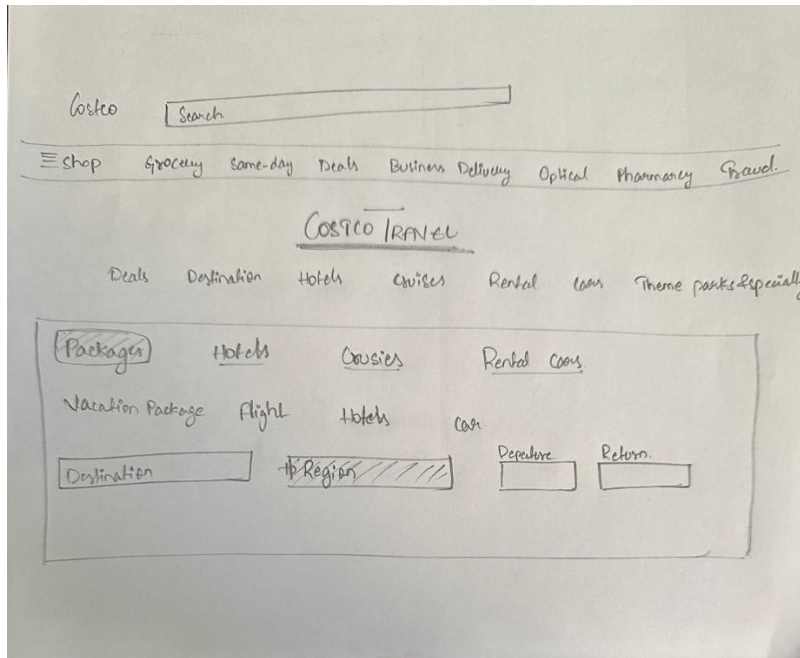 Costco Search
Shop Grocery Same-day Deals Business Delivery Optical Pharmancy
COSTCO TRAVEL
Deals Destination Hotels Cruises Rental cars Theme parks & specialty
Packages Hotels Crusies Rental Cars.
Vacation Package flight Hotels car
Departure Return.
Destination Region